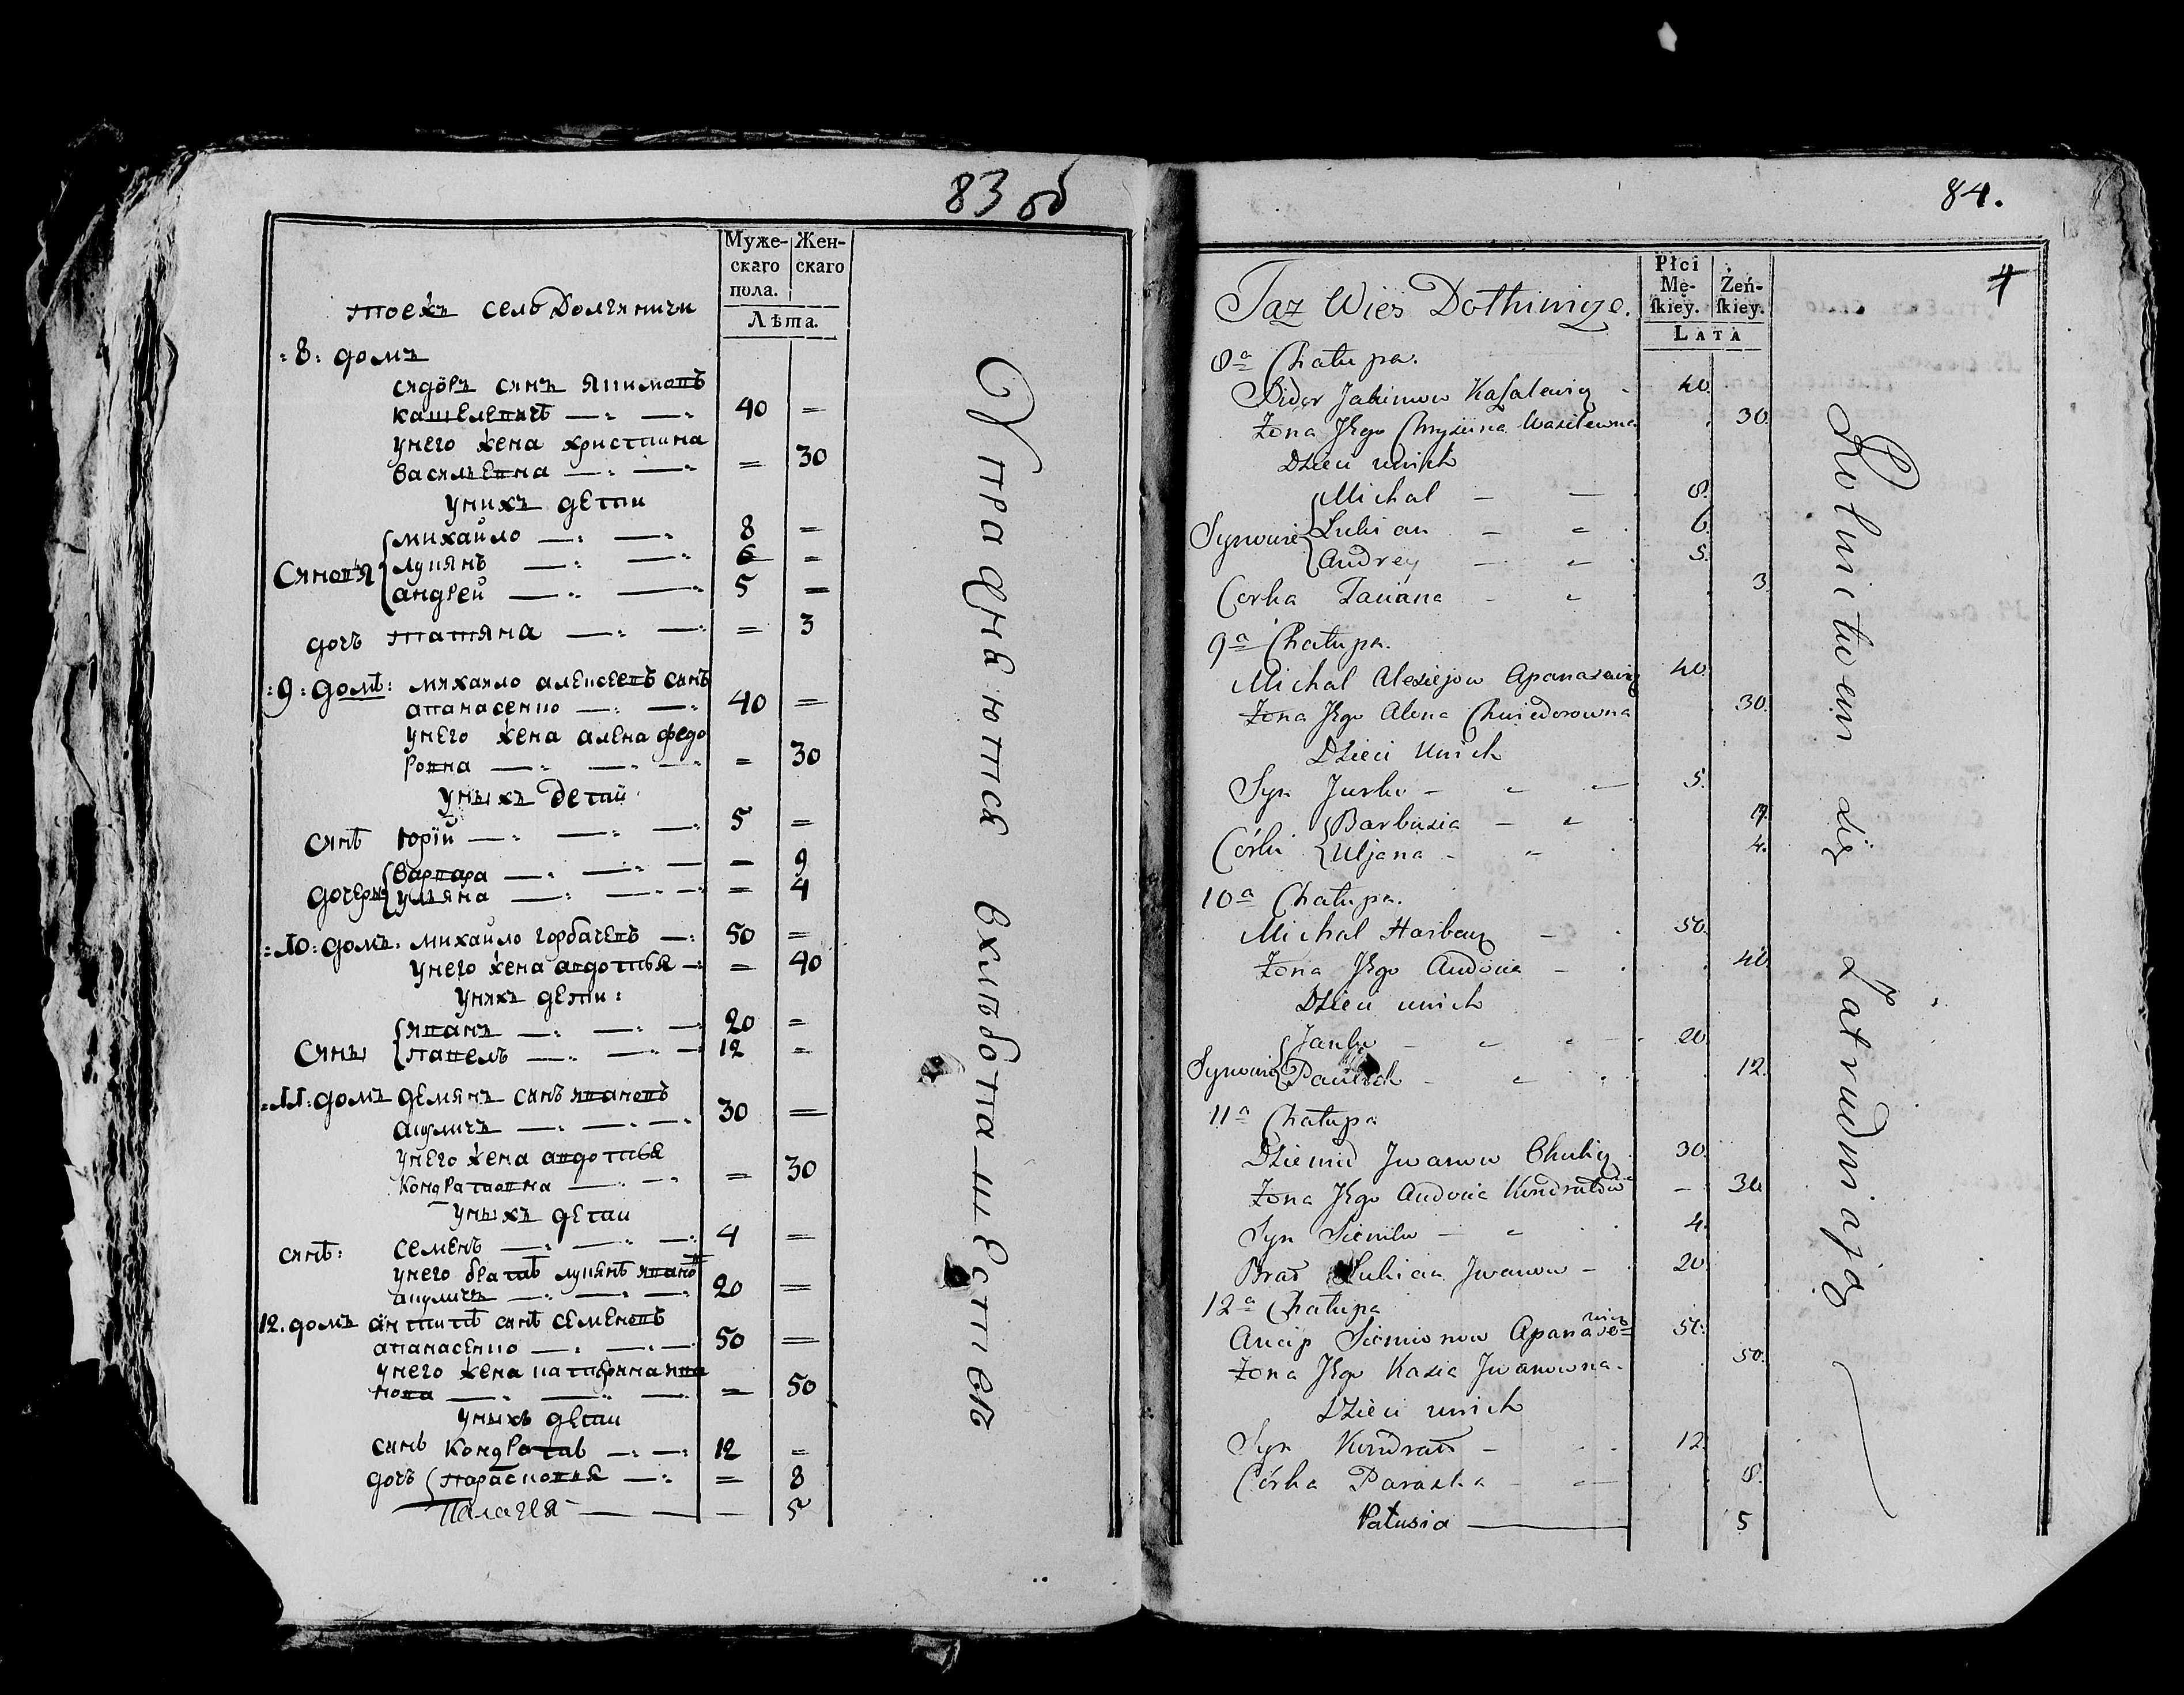 83 об
Муже-
скаго
пола.
Жен-
скаго
Лѣта.
тоежъ село Долгиничи
:8: домъ
сидоръ синъ якимовъ
кашелевичъ 40
унего жена христина
василевна 30
унихъ дети
михайло 8
Синовя лукянъ 6
андрей 5
дочъ татяна 3
:9: домъ: михаило алексеевъ синъ
апанасенко 40
унего жена алена федо
ровна 30
уныхъ дети
синъ юрій 5
варвара 9
дочеры уляна 4
:10: домъ: михайло горбачевъ 50
унего жена авдотья 40
унихъ дети:
иванъ 20
Сины павелъ 12
:11: домъ демянъ синъ ивановъ
акуличъ 30
унего жена авдотья
кондратовна 30
уныхъ дети
синъ: семенъ 4
унего братъ лукянъ ивановъ
акуличъ 20
12. домъ антипъ синъ семеновъ
апанасенко 50
унего жена катерина ива
нова 50
уныхъ дети
синъ кондратъ 12
дочъ парасковья 8
Палагея 5
Упражняются вхлѣбопашестве
84.
4
Płci
Mę-
skiey.
Żeń-
skiey.
LATA
Taz Wies Dołhinicze.
8a Chałupa.
Sidor Jakimow Kaszalewicz 40.
Zona Jego Chrystina Wasilewna 30.
Dzieci unich
Michał 8.
Synowie Łukian 6.
Andrey 5.
Corka Taciana 3
9a Chałupa.
Michał Alexiejow Apanasewicz 40.
Zona Jego Alena Chwiedorowna 30.
Dzieci unich
Syn Jurko 5.
Barbusia 9.
Córki Uljana 4.
10a Chałupa.
Michał Harbacz 50.
Zona Jego Audocia 40.
Dzieci unich
Janko 20.
Synowie Pauluk 12.
11a Chałupa
Dziemid Iwanow Akulicz 30.
Zona Jego Audocia Kondratow 30
Syn Siemko 4.
Brat Łukian Iwanow 20.
12a Chałupa
Ancip Siemionow Apanase=
wicz 50.
Zona Jego Kasia Iwanowna. 50.
Dzieci unich
Syn Kondrat 12.
Córka Paraska 8.
Pałusia 5
Rolnictwem się zatrudniają